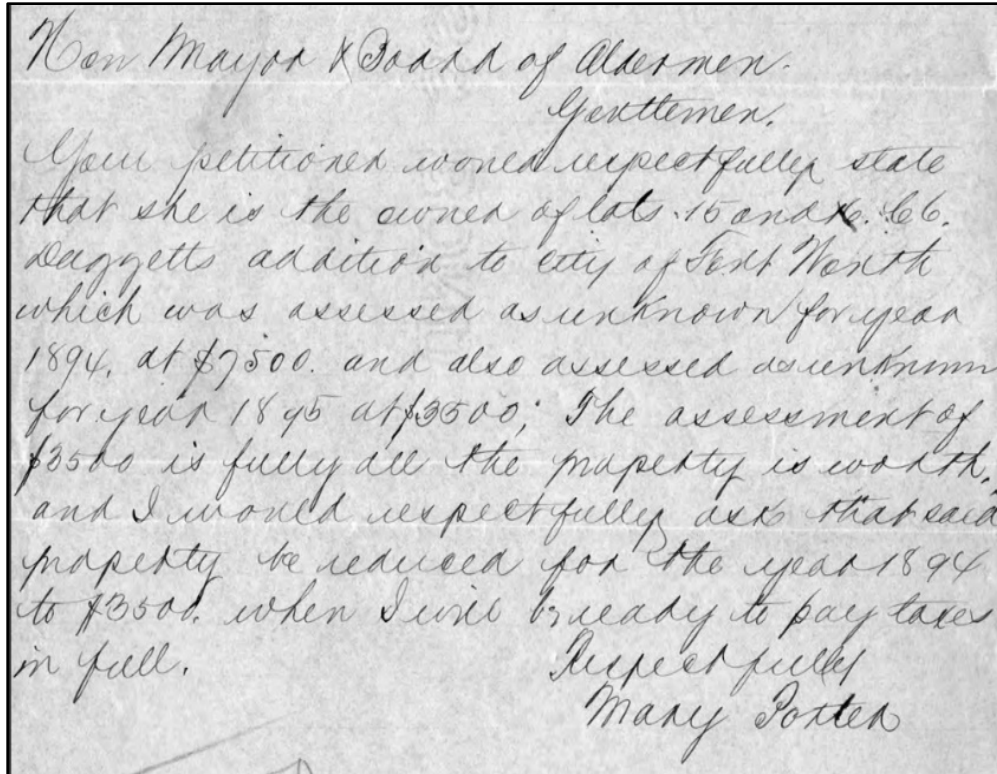 Hon Mayor & Board of Aldermen.
Gentlemen.
Your petitioner would respectfully state
that she is the owner of lots 15 and 16. C6.
Daggetts addition to city of Fort Worth
which was assessed as unknown for year
1894. at $7500. and also assessed as unknown
for year 1895 at $3500; The assessment of
$3500 is fully all the property is worth,
and I would respectfully ask that said
property be reduced for the year 1894
to $3500. when I will be ready to pay taxes
in full.
Respectfully
Mary Porter